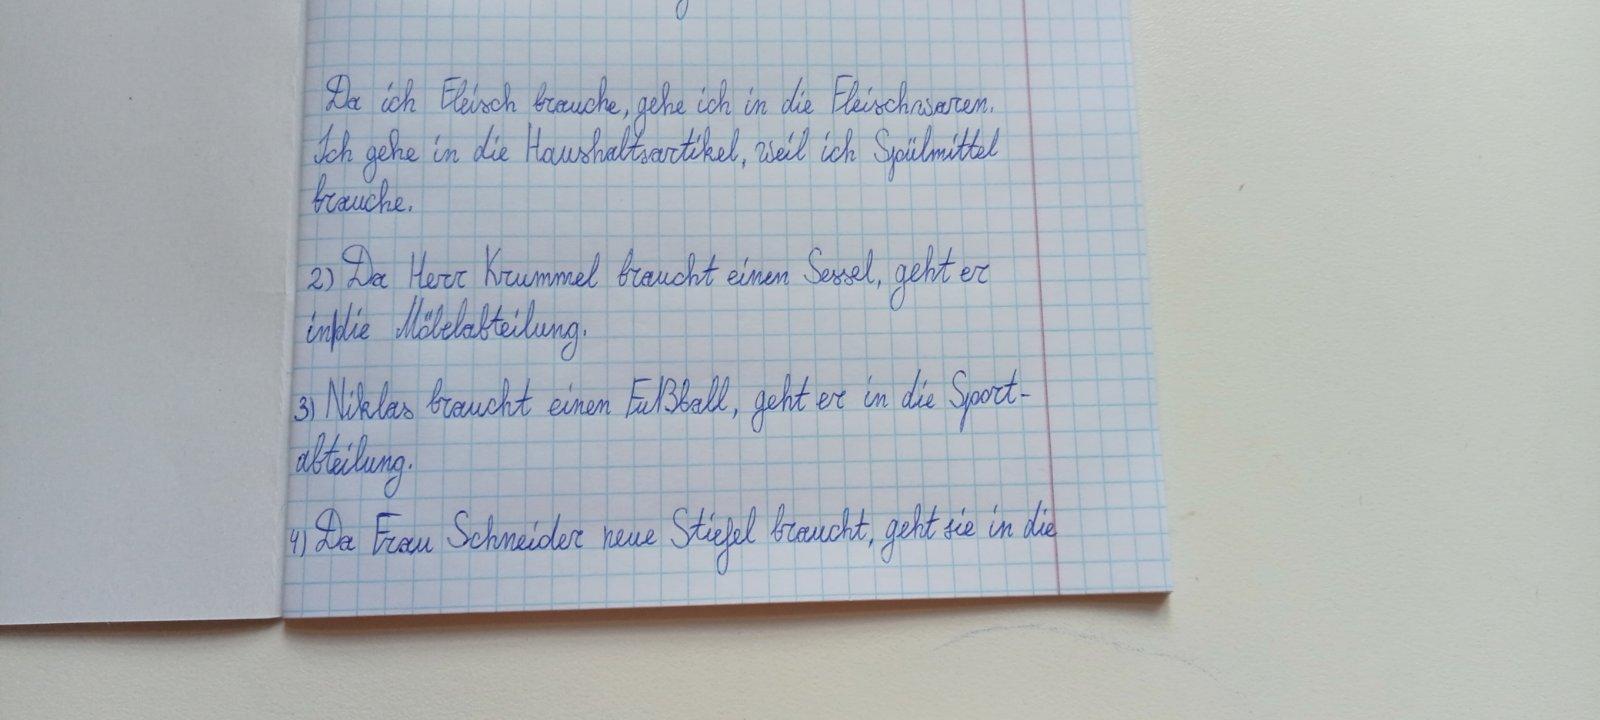 Da ich Fleisch brauche, gehe ich in die Fleischwaren.
Ich gehe in die Haushaltsartikel, weil ich Spülmittel
brauche.
2) Da Herr Krummel braucht einen Sessel, geht er
in die Möbelabteilung.
3) Niklas braucht einen Fußball, geht er in die Sport-
abteilung.
4) Da Frau Schneider neue Stiefel braucht, geht sie in die